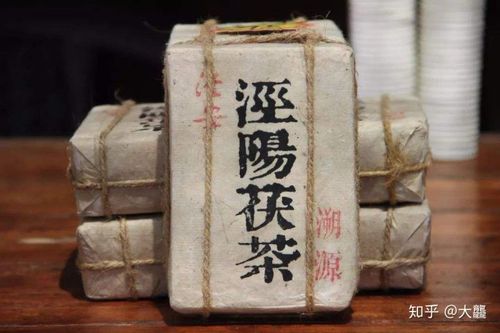 涇陽茯茶
溯源
知乎 @大龑